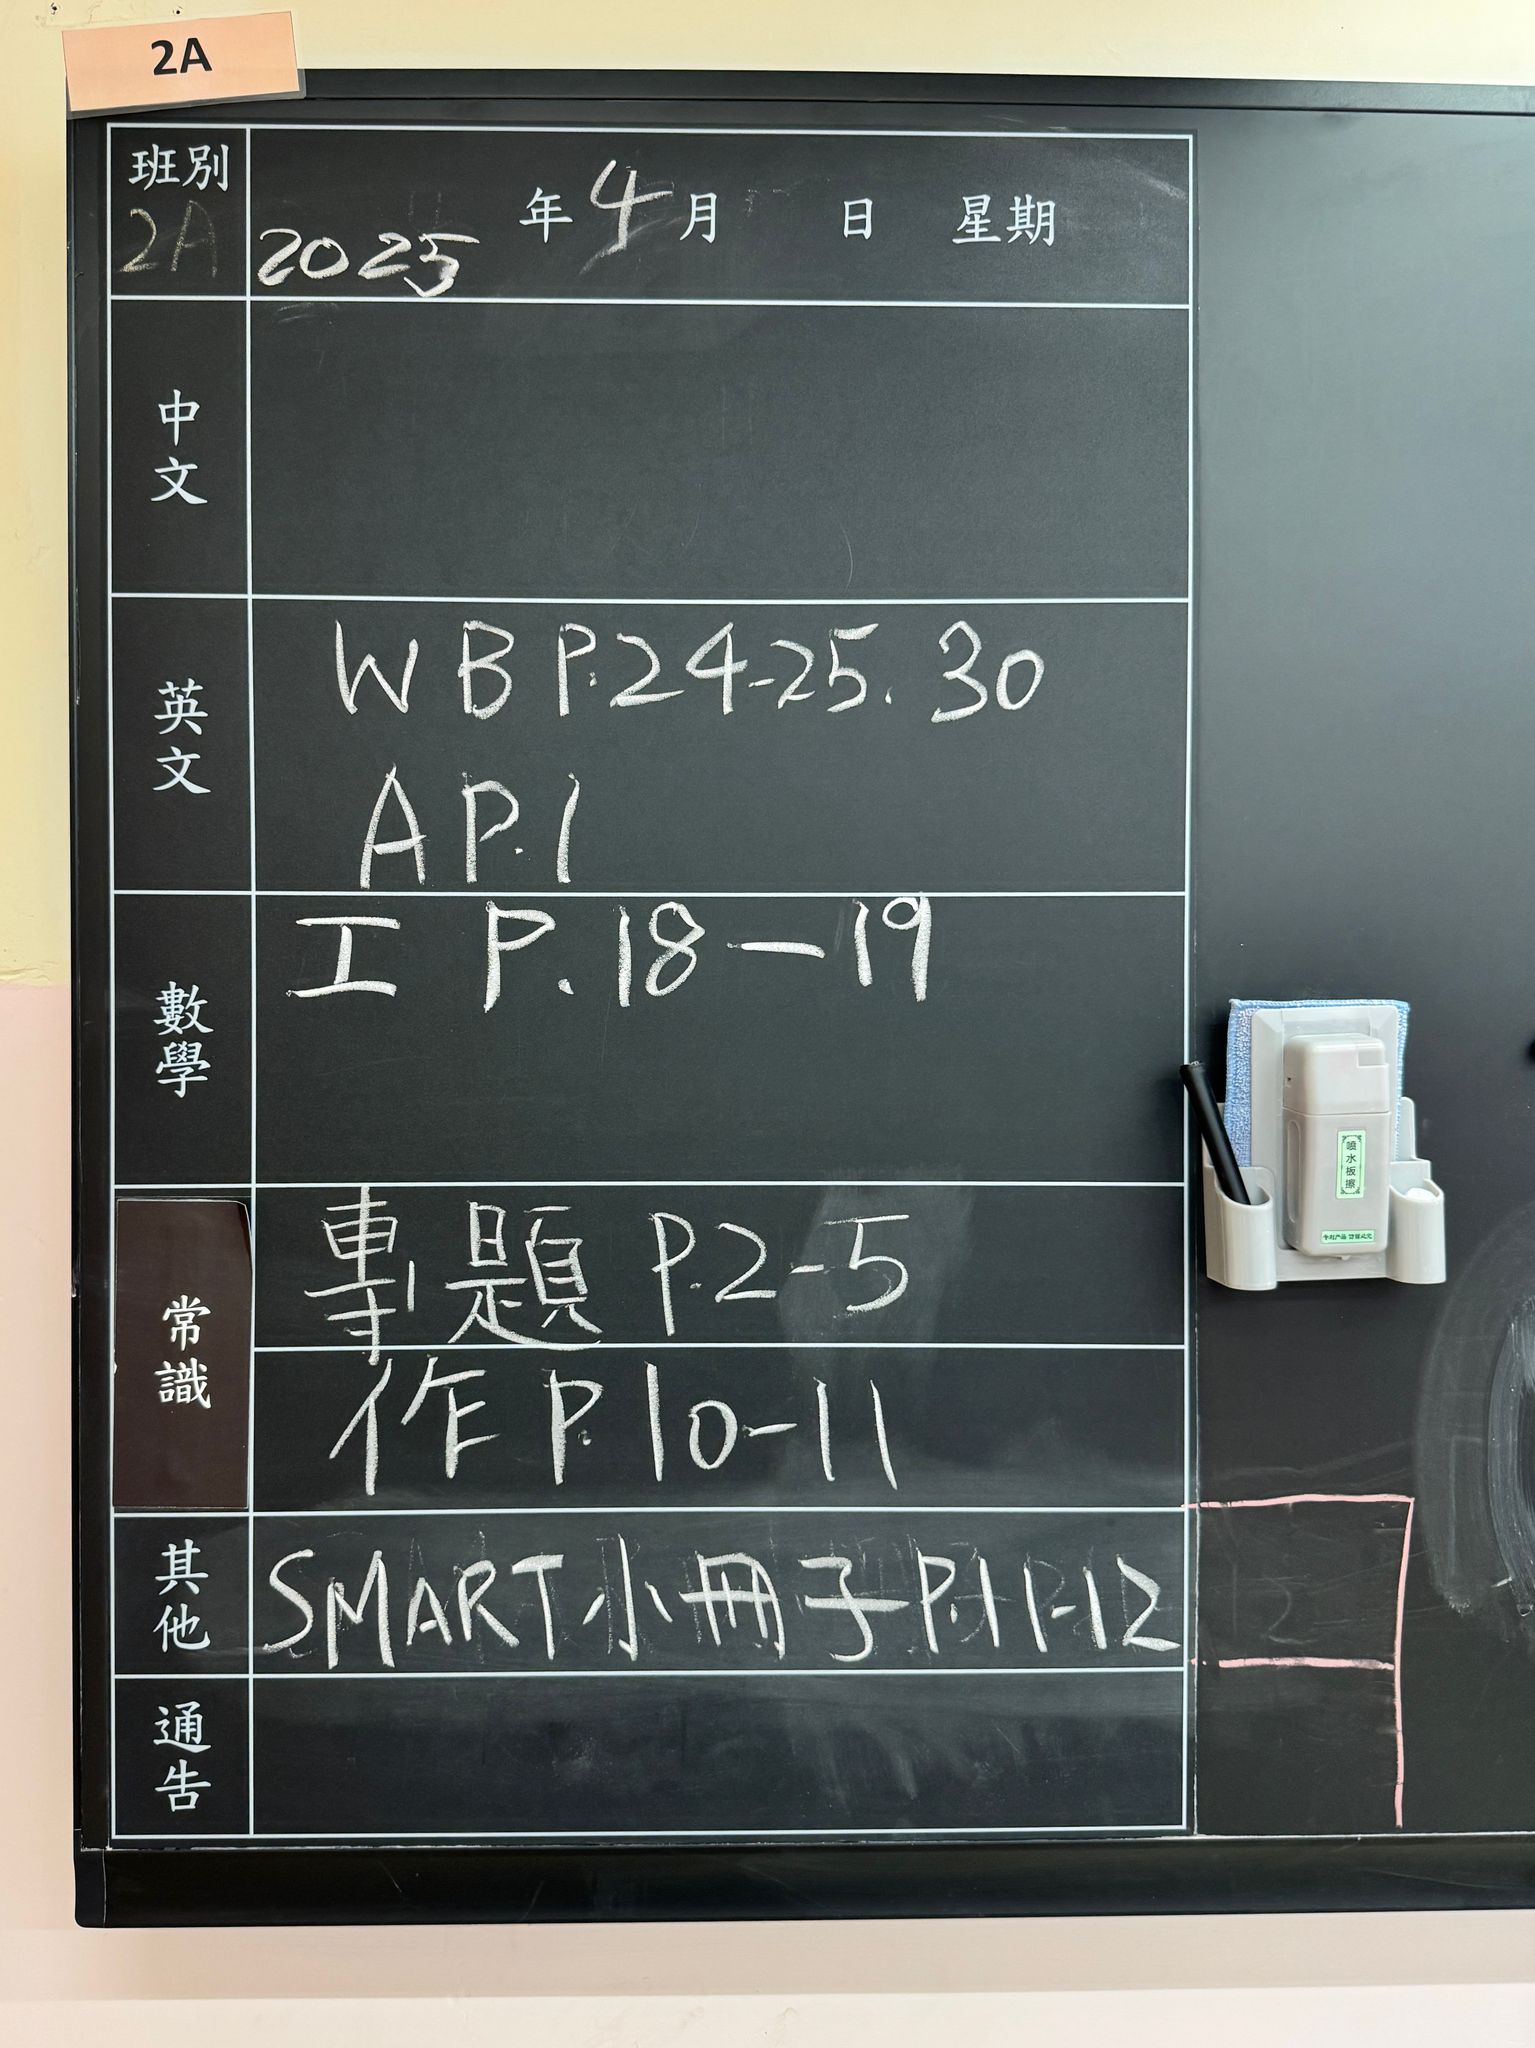 2A
班別
2A
2025 年 4 月 日 星期
中文
英文
WB P.24-25. 30
A P.1
數學
工 P.18—19
常識
專題 P.2-5
作 P.10-11
其他
SMART小冊子P.11-12
通告
喷水板擦